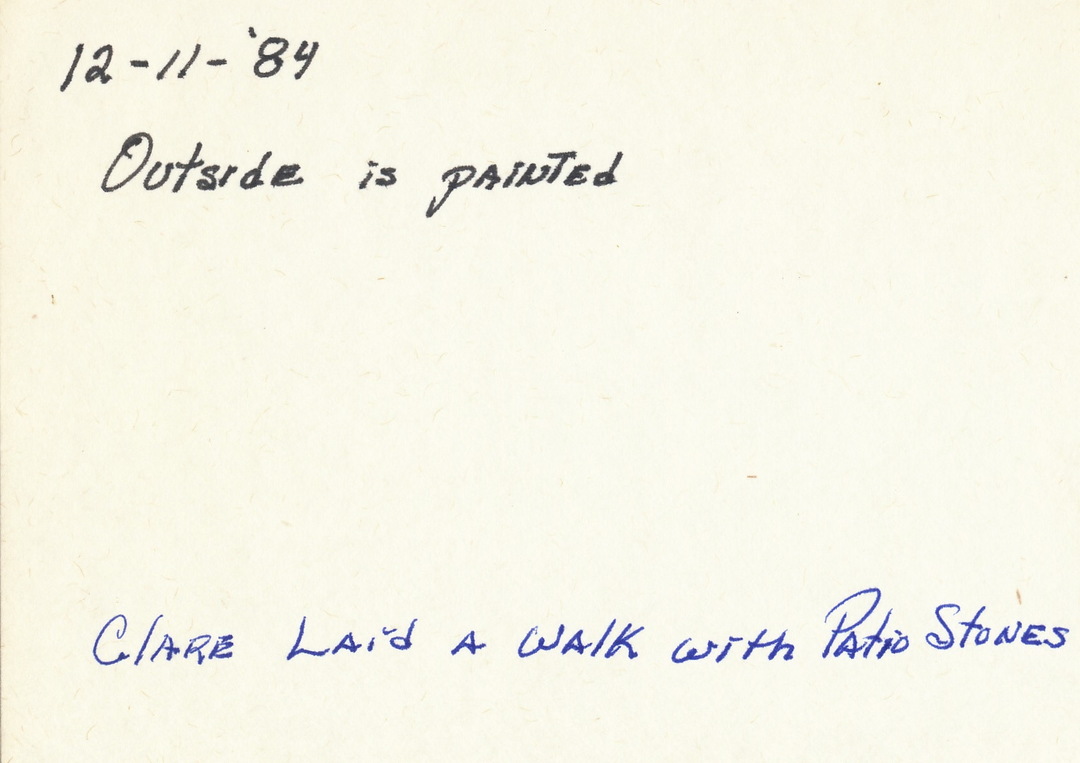 12-11-'84
Outside is painted
Clare Laid a walk with Patio Stones